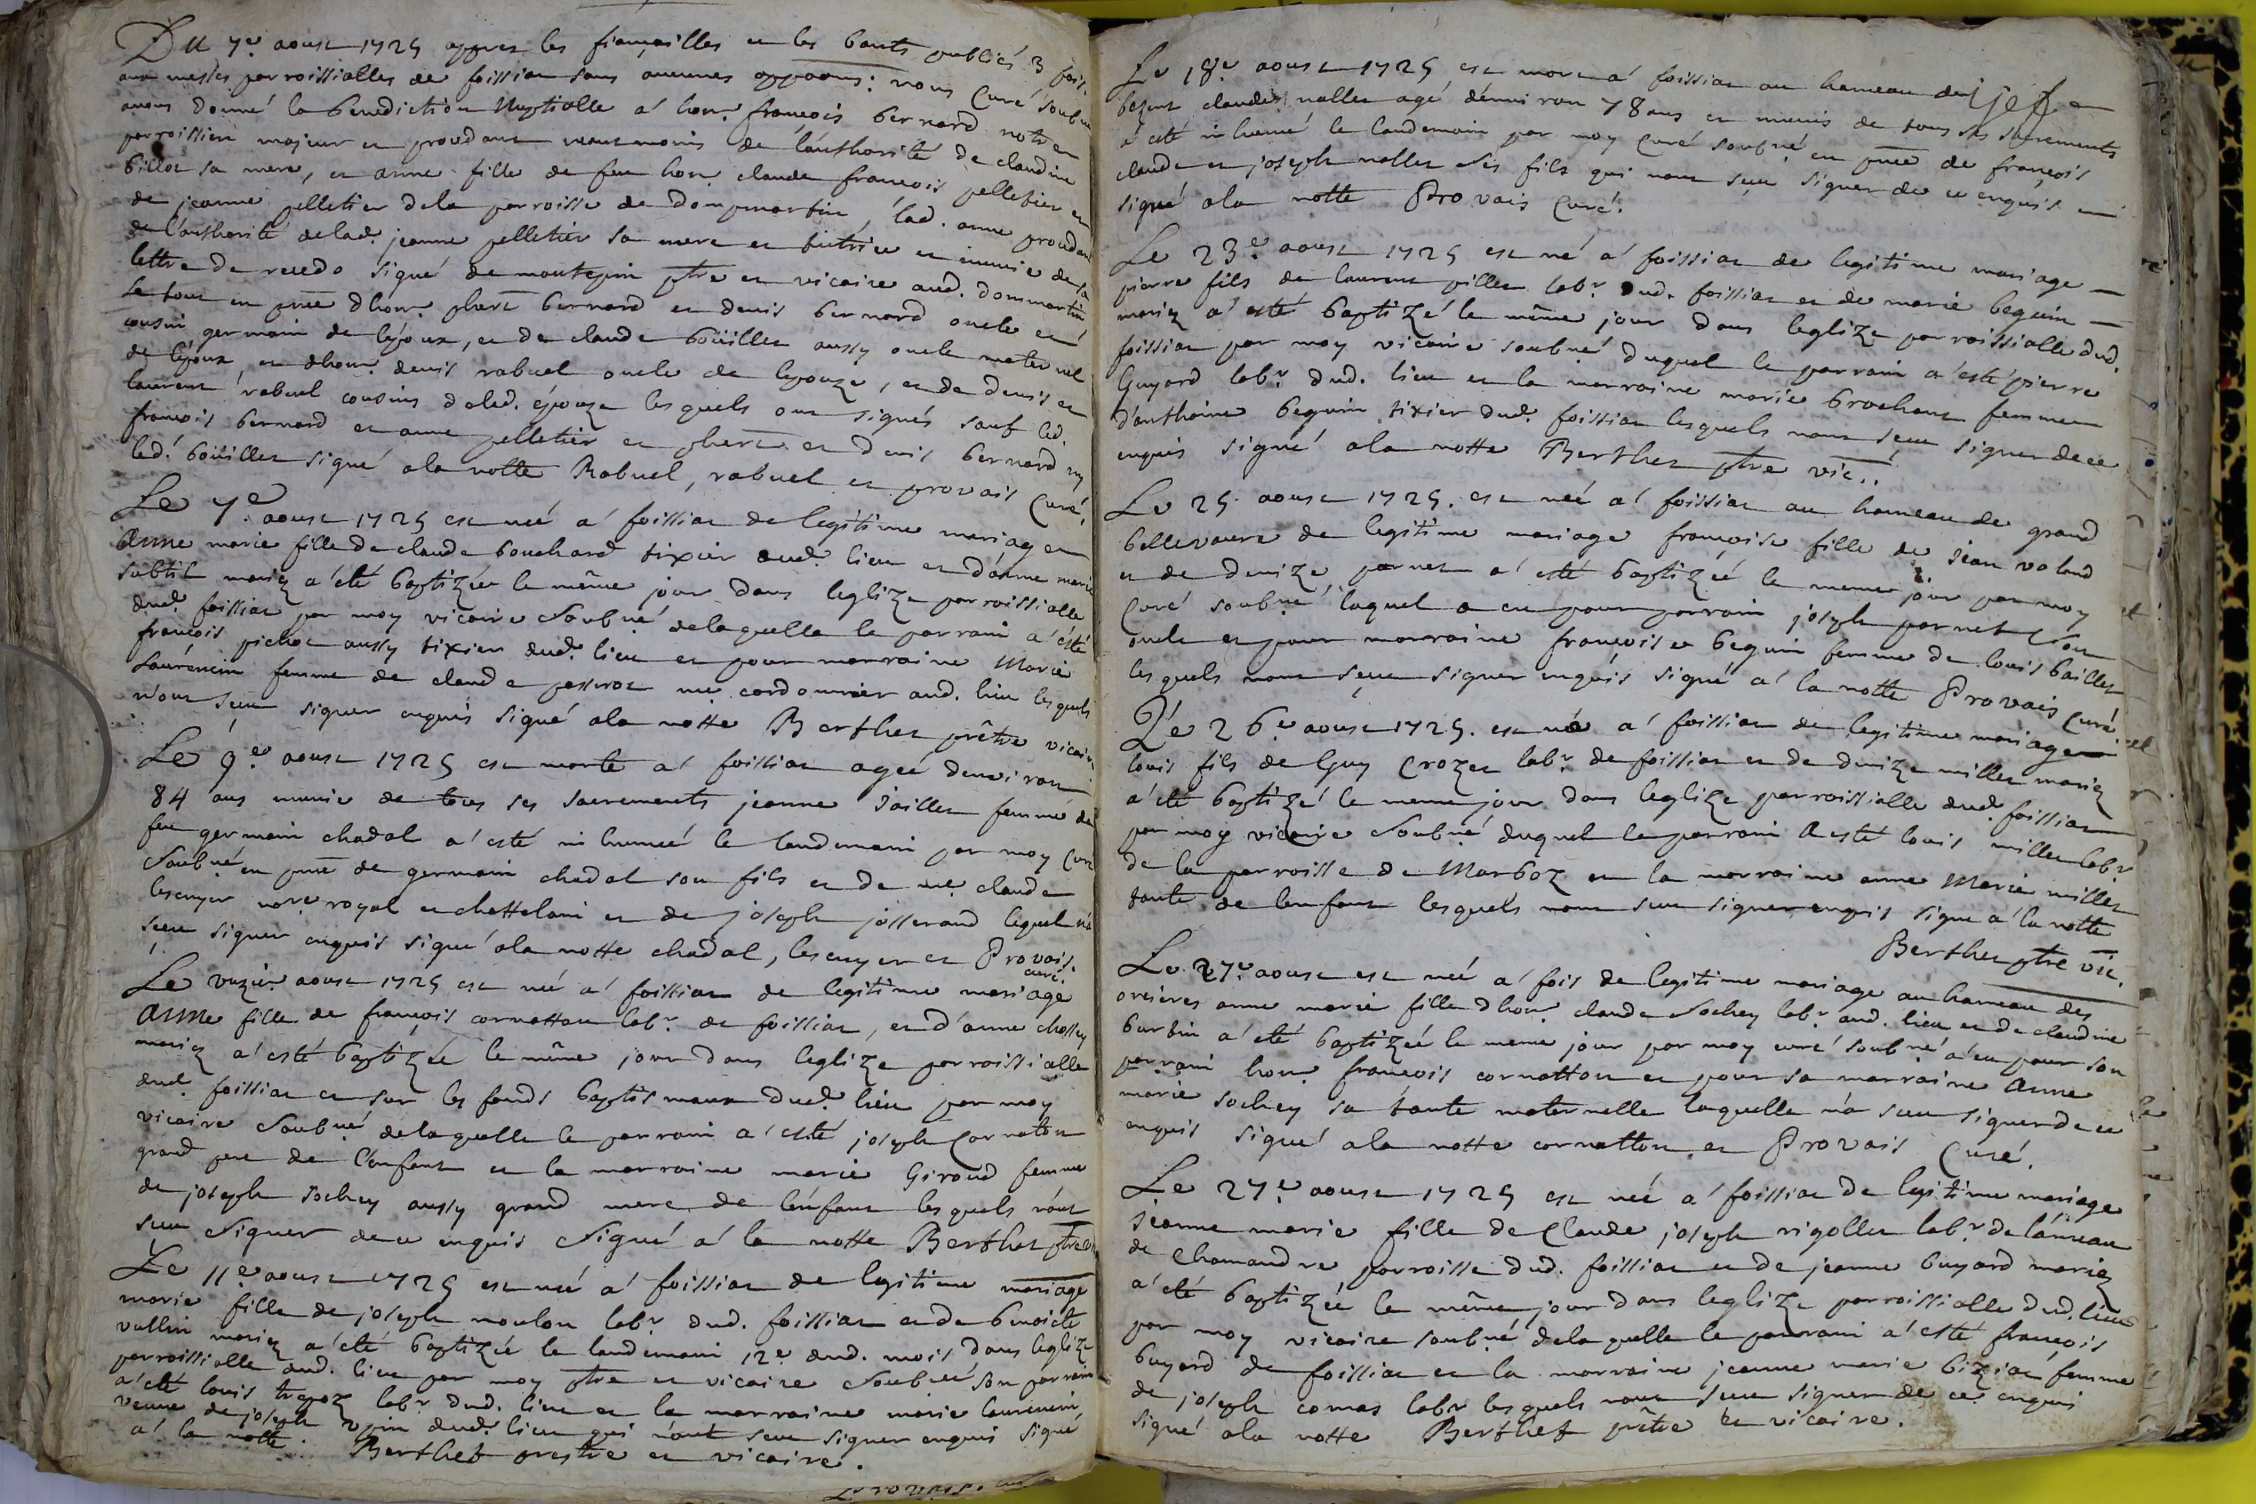 Du 7e aoust 1725 appres les fiançailles et les bants publiés 3 fois
aux messes parroissialles de foissiat sans aucunes oppoons: nous Curé soubné
avons donné la benediction Nuptialle a hon. françois bernard notre
parroissien majeur et procedant neantmoins de l'authorité de claudine
billot sa mere, et anne fille de feu hon. claude françois pelletier et
de jeanne pelletier de la parroisse de dompmartin, lad. anne procedant
de l'authorité de lad. jeanne pelletier sa mere et tutrice et munie de sa
lettre de recedo signé de montepin ptre et vicaire aud. dommartin
Le tout en pnce d'hon. phert bernard et denis bernard oncle et
cousin germain de lépoux, et de claude boüillet aussy oncle maternel
de lépoux, et d'hon. denis rabuel oncle de lepouze, et de denis et
laurent rabuel cousins de lad. épouze lesquels ont signés sauf led.
françois bernard et anne pelletier et phert et denis bernard ny
led. boüillet signé a la notte Rabuel, rabuel et provais Curé.
Le 7e aoust 1725 est neé a foissiat de legitime mariage
Anne marie fille de claude bouchard tixier aud. lieu et d'anne marie
subtil mariez a été baptizée le même jour dans leglize parroissialle
dud. foissiat par moy vicaire Soubné de laquelle le parrain a été
françois pichot aussy tixier dud. lieu et pour marraine Marie
Laurencin femme de claude passerat me cordonnier aud. lieu lesquels
n'ont seu signer enquis signé a la notte Berthet prêtre vicaire
Le 9e aoust 1725 est morte a foissiat ageé denviron
84 ans munie de tous ses sacrements jeanne Jaillet femme de
feu germain chadal a esté inhumeé le landemain par moy Curé
Soubné en pnce de germain chadal son fils et de me claude
lescuyer nore royal et chattelain et de joseph josserand lequel n'a
seu signer enquis signé a la notte chadal, lescuyer et Provais
curé.
Le vnzie aoust 1725 est neé a foissiat de legitime mariage
Anne fille de françois cornatton labr de foissiat, et d'anne chossey
mariez a esté baptizée le même jour dans leglize parroissialle
dud. foissiat et sur les fonds baptismaux dud. lieu par moy
vicaire Soubné de laquelle le parrain a esté joseph Cornaton
grand pere de l'enfant et la marraine marie Giroud femme
de joseph sochey aussy grand mere de l'enfant lesquels n'ont
seu Signer de ce enquis Signé a la notte Berthet ptre
Le 11e aoust 1725 est neé a foissiat de legitime mariage
marie fille de joseph moulon labr dud. foissiat et de benoicte
vullin mariez a été baptizée le landemain 12e dud. mois dans leglize
parroissialle dud. lieu par moy ptre et vicaire Soubné Son parrain
a été louis trepoz labr dud. lieu et la marraine marie laurencin
veuve de joseph dud. lieu qui n'ont seu signer enquis signé
a la notte. Berthet prestre et vicaire.
Le 18e aoust 1725 est mort a foissiat au hameau de
claude nallet agé denviron 78 ans et munis de tous ses sacrements
a esté inhumé le landemain par moy Curé soubné en pnce de françois
claude et joseph nallet ses fils qui n'ont seu signer de ce enquis
signé a la notte Provais Curé.
Le 23e aoust 1725 est né a foissiat de legitime mariage
pierre fils de laurent pillet labr dud. foissiat et de marie beguin
mariez a esté baptizé le même jour dans leglize parroissialle dud.
foissiat par moy vicaire soubné duquel le parrain a esté pierre
Guyard labr dud. lieu et la marraine marie brochant femme
d'anthoine beguin tixier dud. foissiat lesquels n'ont seu signer de ce
enquis signé a la notte Berthet ptre vic.
Le 25. aoust 1725. est neé a foissiat au hameau de grand
bellevavre de legitime mariage françoise fille de Jean voland
et de denize parnet a esté baptizeé le meme jour par moy
Curé soubné laquel a eu pour parrain joseph parnet son
oncle et pour marraine françoise beguin femme de louis baillet
lesquels n'ont seu signer enquis signé a la notte Provais Curé
Le 26e aoust 1725. est né a foissiat de legitime mariage
louis fils de Guy Crozet labr de foissiat et de denize millet mariez
a été baptizé le meme jour dans leglize parroissialle dud. foissiat
par moy vicaire Soubné duquel le parrain a esté louis millet labr
de la parroisse de Marboz et la marraine anne Marie millet
tante de l'enfant lesquels n'ont seu signer enquis signé a la notte
Berthet ptre vic.
Le 27e aoust est neé a fois de legitime mariage au hameau des
oreires anne marie fille d'hon. claude Sochey labr aud. lieu et de claudine
burtin a été baptizeé le meme jour par moy curé soubné a eu pour son
parrain hon. françois cornatton et pour sa marraine Anne
marie sochey sa tante maternelle laquelle n'a seu signer de ce
enquis signé a la notte cornatton et Provais Curé.
Le 27e aoust 1725 est neé a foissiat de legitime mariage
Jeanne marie fille de Claude joseph rigollet labr de lameau
de Chamandre parroisse dud. foissiat et de jeanne buyard mariez
a été baptizée le même jour dans leglize parroissialle dud. lieu
par moy vicaire soubné de laquelle le parrain a esté françois
buyard de foissiat et la marraine jeanne marie biziat femme
de joseph comas labr lesquels n'ont seu signer de ce enquis
signé a la notte Berthet prêtre et vicaire.